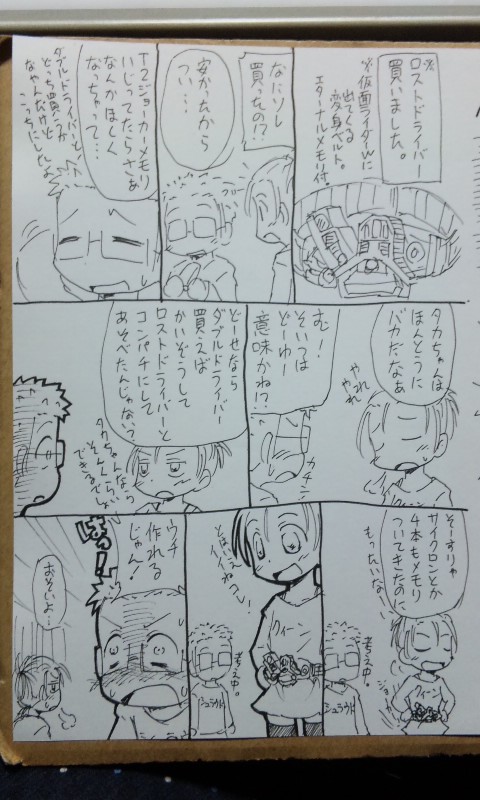 ※ロストドライバー
買いました。
※仮面ライダーWに
出てくる
変身ベルト。
エターナルメモリ付。
なにソレ
買ったの!?
安かたから
つい…
T2ジョーカーメモリ
いじってたらさぁ
なんかほしく
なっちゃって…
ダブルドライバーと
どっち買うか
なやんだけど
こっちにしたよ
タカちゃんは
ほんとうに
バカだなぁ
やれ
やれ
むー!
そいつは
どーゆー
意味かね!?
カチン
どーせなら
ダブルドライバー
買えば
かいぞうして
ロストドライバーと
コンパチにして
あそべたんじゃない?
タカちゃんなら
そんくらい
できるでしょ
そーすりゃ
サイクロンとか
4本もメモリ
ついてきたのに
もったいない
クィーン
考え中。
シュラウド
とはいえ
イイねコレ!
クィーン
考え中。
シュラウド
ウチ
作れる
じゃん!
はっ!
おそいよ…